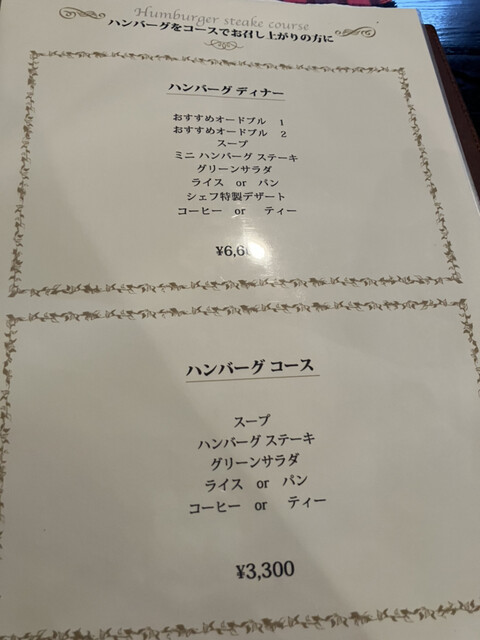 Humburger steake course
ハンバーグをコースでお召し上がりの方に
ハンバーグ ディナー
おすすめオードブル 1
おすすめオードブル 2
スープ
ミニ ハンバーグ ステーキ
グリーンサラダ
ライス or パン
シェフ特製デザート
コーヒー or ティー
ハンバーグ コース
スープ
ハンバーグ ステーキ
グリーンサラダ
ライス or パン
コーヒー or ティー
¥3,300